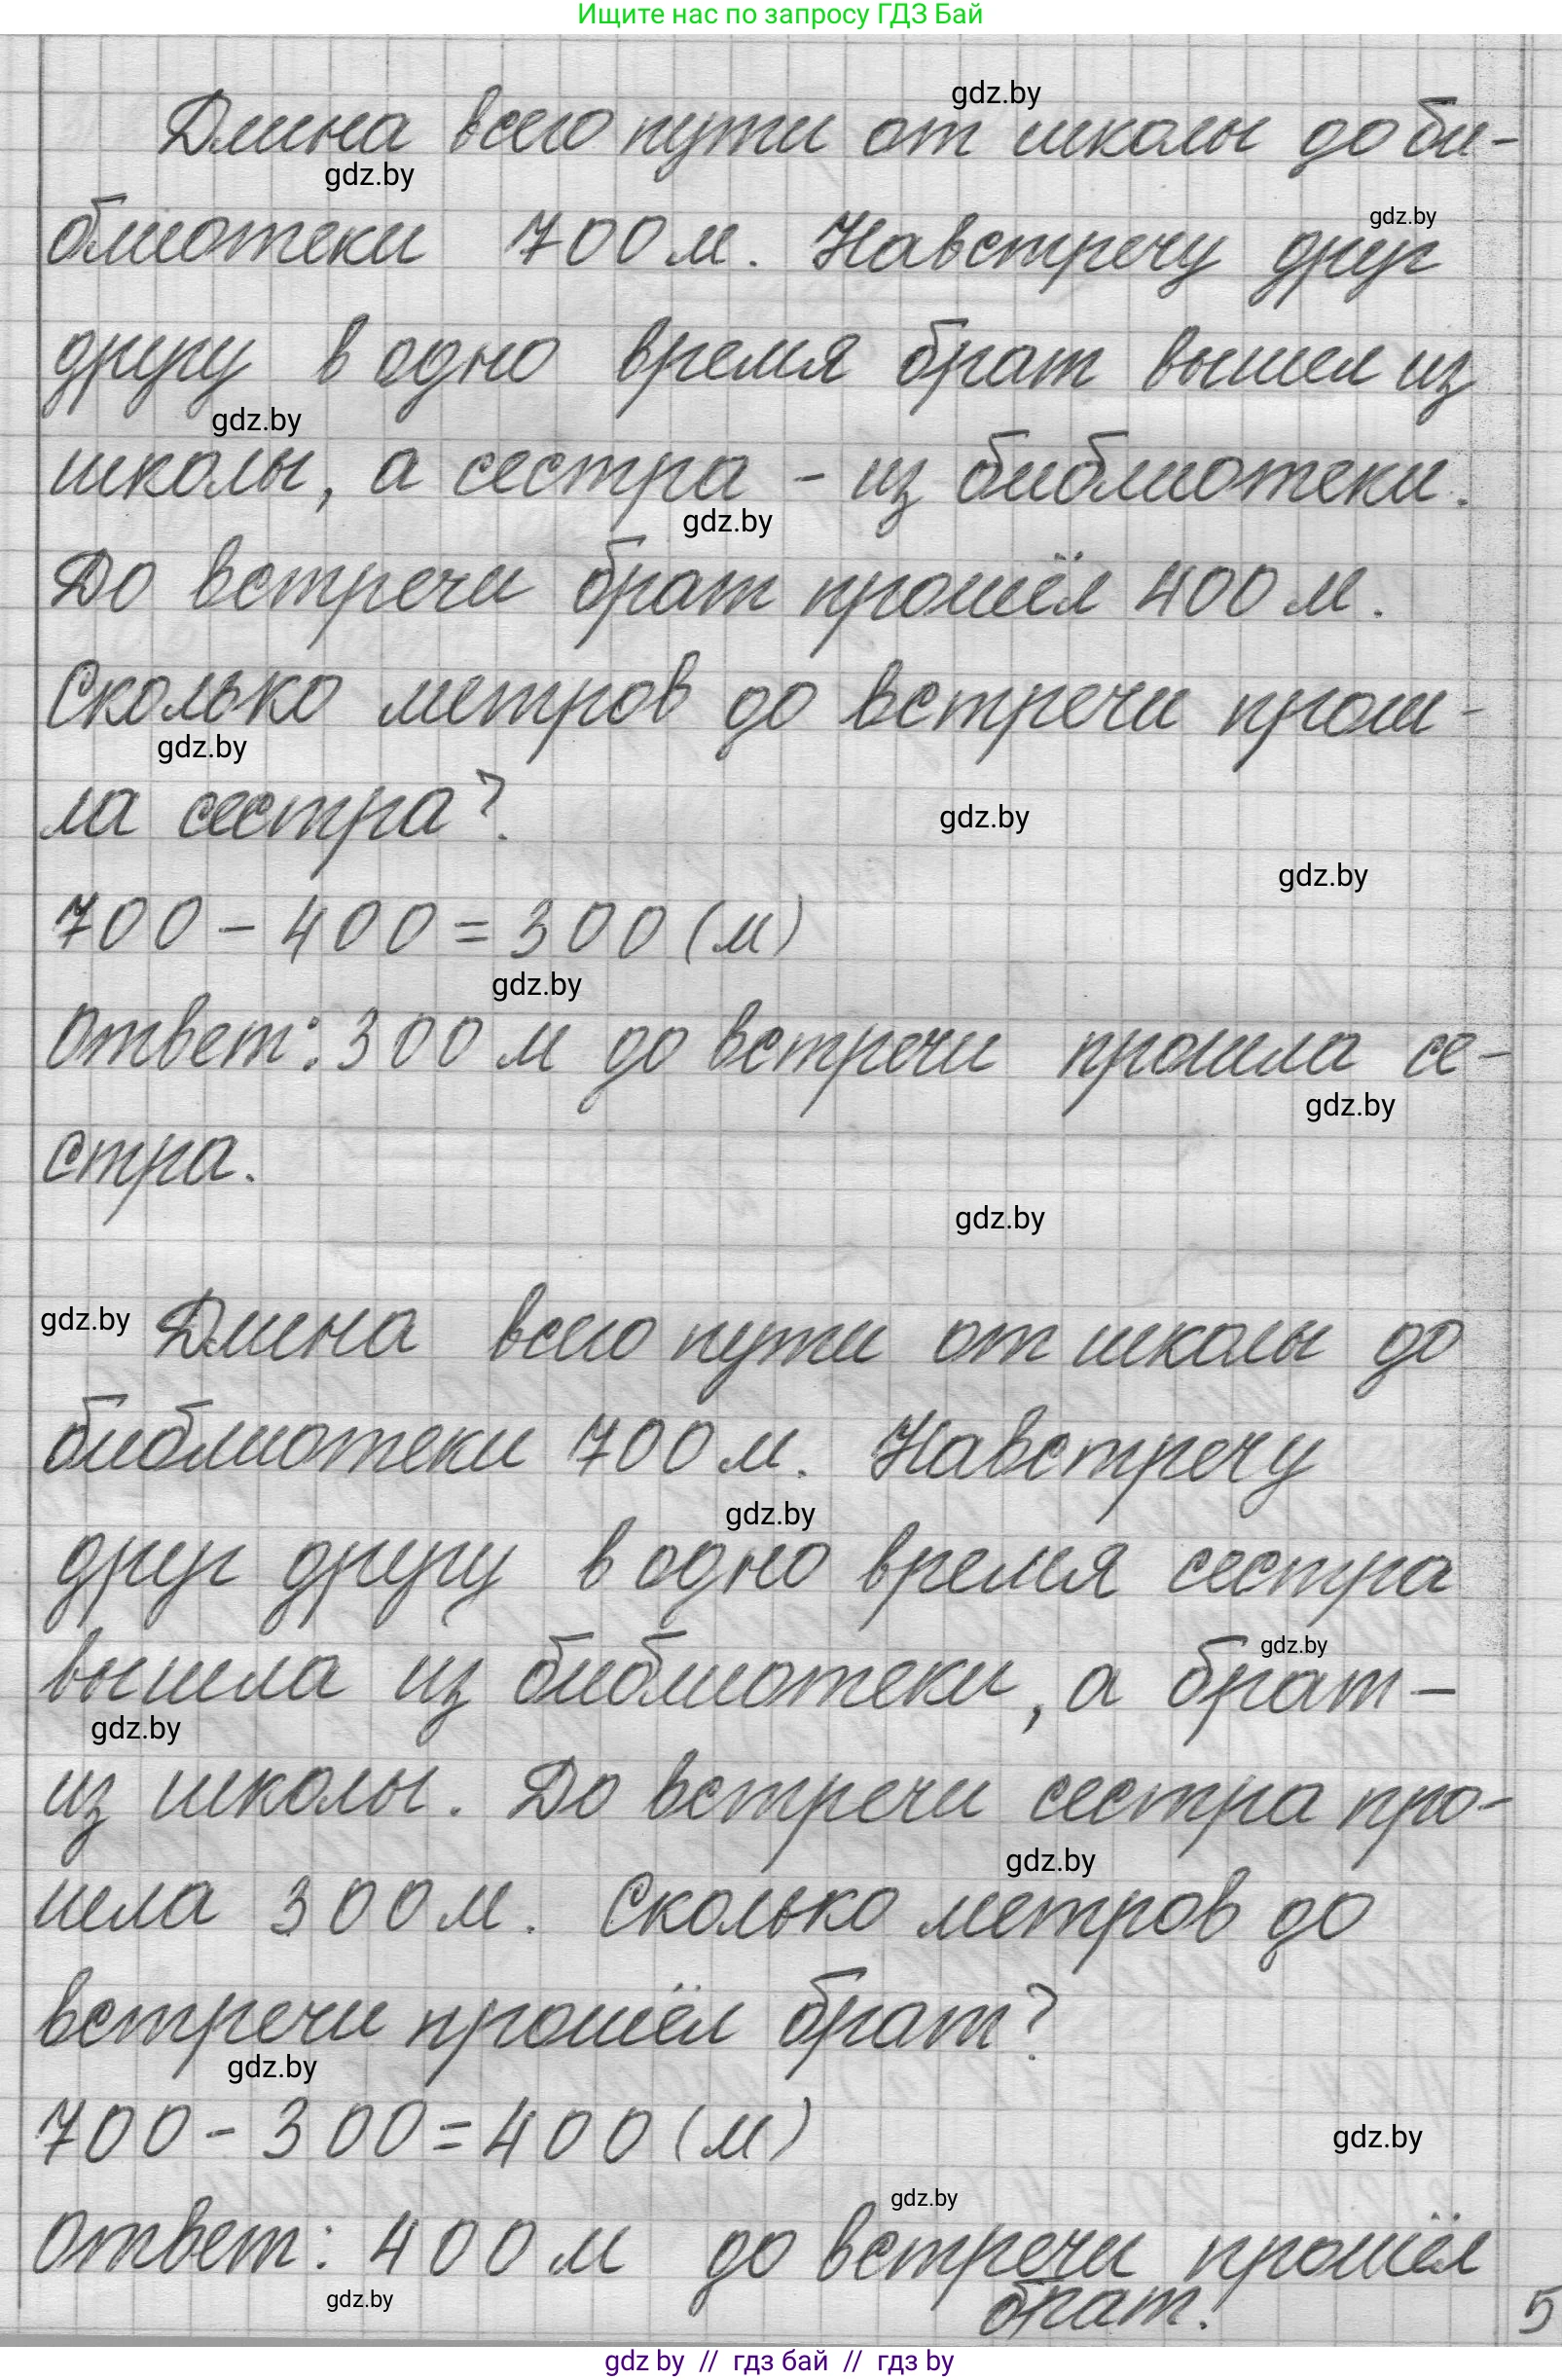 Ищите нас по запросу ГДЗ Бай
gdz.by
Длина всего пути от школы до би-
gdz.by
gdz.by
блиотеки 700 м. Навстречу друг
другу в одно время брат вышел из
gdz.by
школы, а сестра - из библиотеки.
gdz.by
До встречи брат прошёл 400 м.
Сколько метров до встречи прош-
gdz.by
ла сестра?
gdz.by
gdz.by
700 - 400 = 300 (м)
gdz.by
Ответ: 300 м до встречи прошла се-
gdz.by
стра.
gdz.by
gdz.by
Длина всего пути от школы до
библиотеки 700 м. Навстречу
gdz.by
друг другу в одно время сестра
gdz.by
вышла из библиотеки, а брат -
gdz.by
из школы. До встречи сестра про-
gdz.by
шла 300 м. Сколько метров до
встречи прошёл брат?
gdz.by
700 - 300 = 400 (м)
gdz.by
gdz.by
Ответ: 400 м до встречи прошёл
gdz.by
брат.
5
gdz by // гдз бай // гдз by